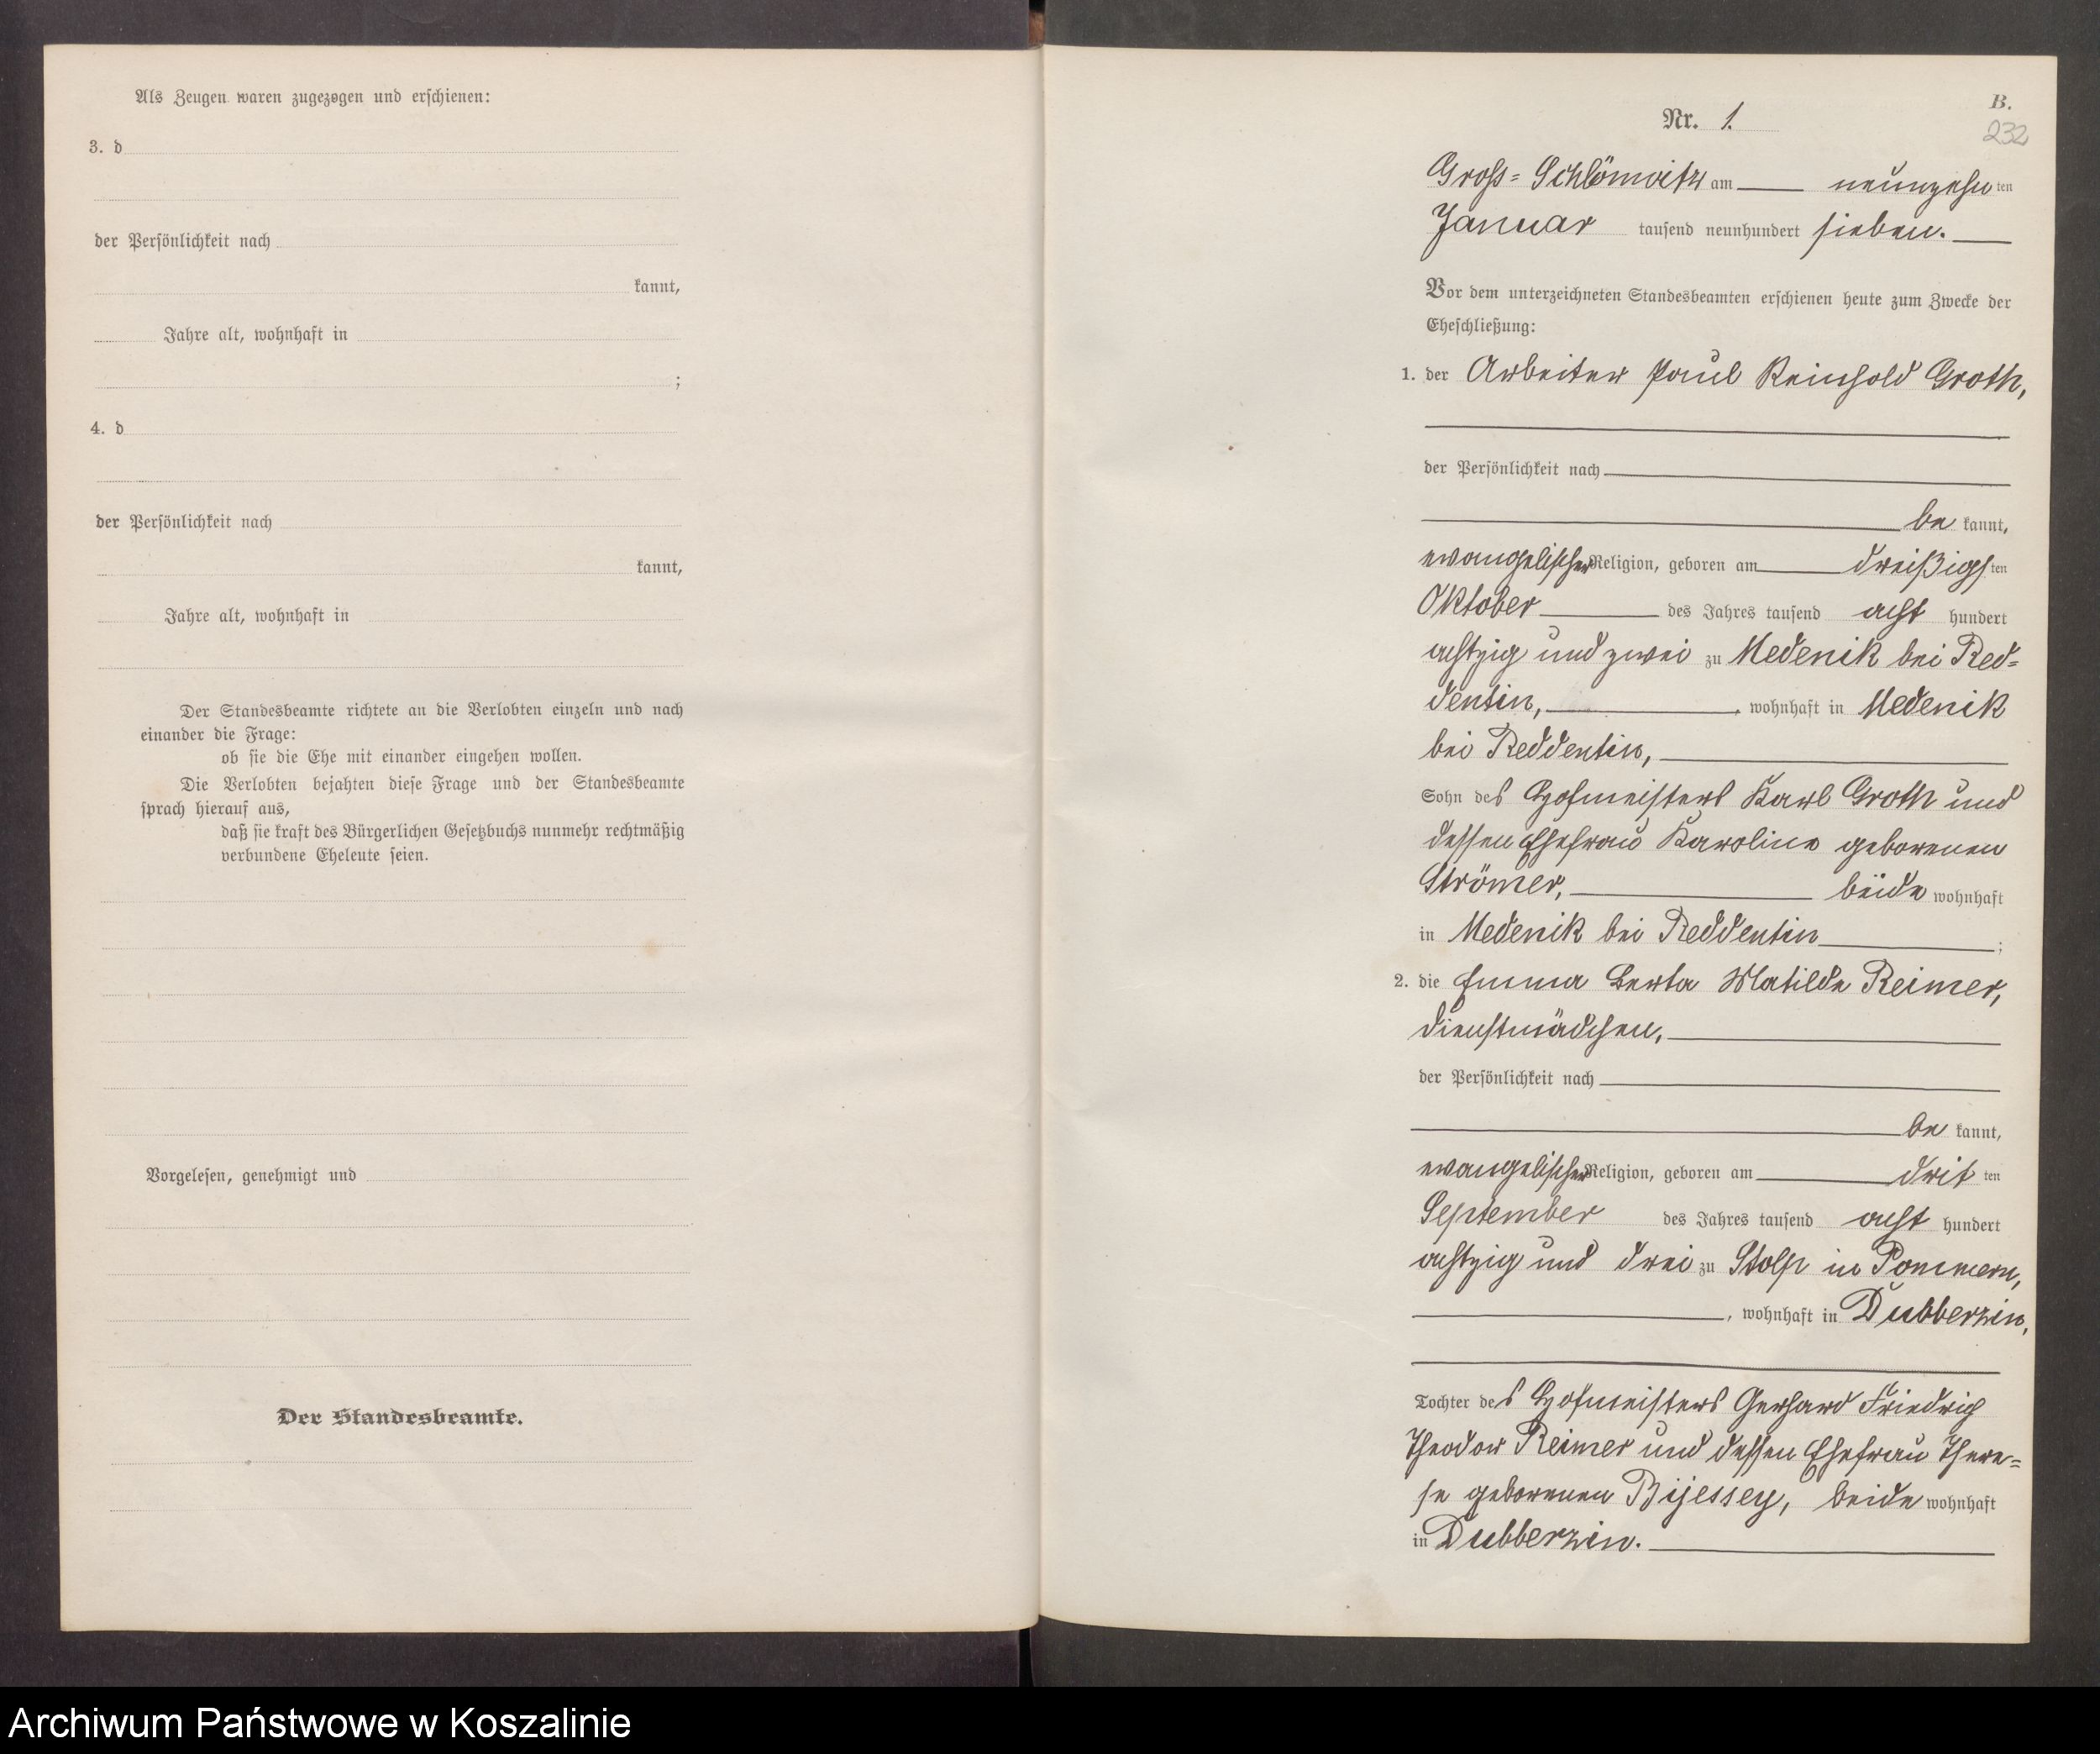 Als Zeugen waren zugezogen und erschienen:
3. d
der Persönlichkeit nach
kannt,
Jahre alt, wohnhaft in
;
4. d
der Persönlichkeit nach
kannt,
Jahre alt, wohnhaft in
Der Standesbeamte richtete an die Verlobten einzeln und nach
einander die Frage:
ob sie die Ehe mit einander eingehen wollen.
Die Verlobten bejahten diese Frage und der Standesbeamte
sprach hierauf aus,
daß sie kraft des Bürgerlichen Gesetzbuchs nunmehr rechtmäßig
verbundene Eheleute seien.
Vorgelesen, genehmigt und
Der Standesbeamte.
B.
Nr. 1.
232
Gross-Schlönwitz am neunzehnten
Januar tausend neunhundert sieben.
Vor dem unterzeichneten Standesbeamten erschienen heute zum Zwecke der
Eheschließung:
1. der Arbeiter Paul Reinhold Groth,
der Persönlichkeit nach
bekannt,
evangelischer Religion, geboren am dreißigsten
Oktober des Jahres tausend acht hundert
achtzig und zwei zu Medenik bei Red=
dentin, wohnhaft in Medenik
bei Reddentin,
Sohn des Hofmeisters Karl Groth und
dessen Ehefrau Karoline geborenen
Strömer, beide wohnhaft
in Medenik bei Reddentin ;
2. die Emma Berta Matilde Reimer,
Dienstmädchen,
der Persönlichkeit nach
bekannt,
evangelischer Religion, geboren am dritten
September des Jahres tausend acht hundert
achtzig und drei zu Stolp in Pommern,
, wohnhaft in Dubberzin,
Tochter des Hofmeisters Gerhard Friedrich
Theodor Reimer und dessen Ehefrau There=
se geborenen Bijessey, beide wohnhaft
in Dubberzin.
Archiwum Państwowe w Koszalinie